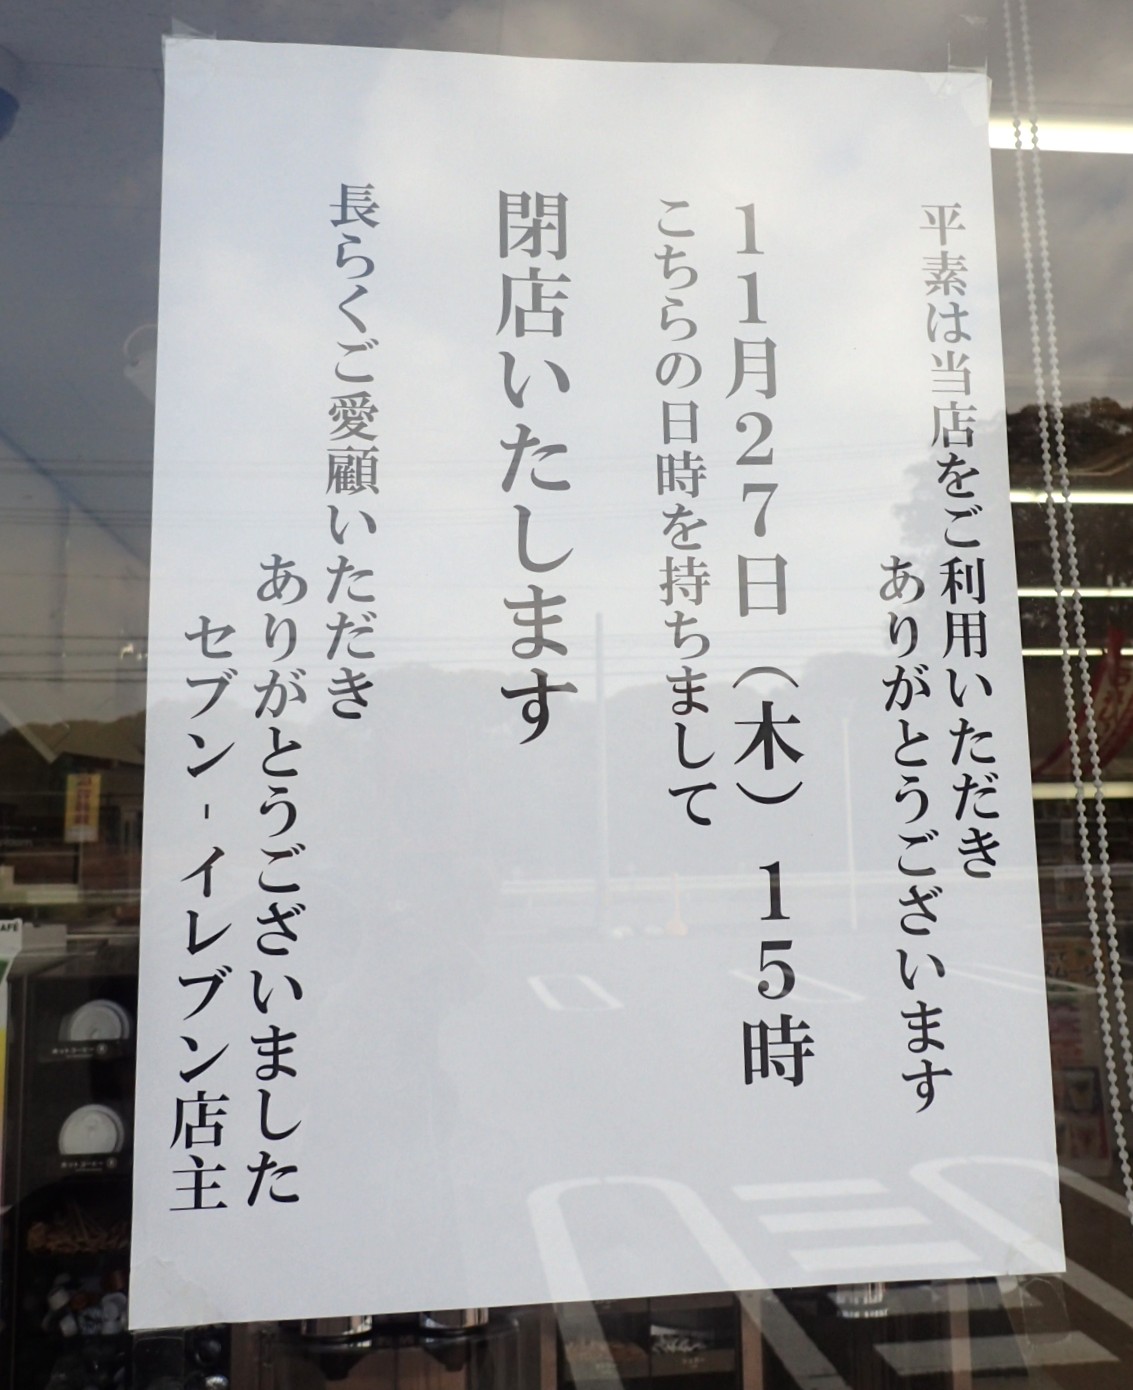 平素は当店をご利用いただき
ありがとうございます
11月27日(木) 15時
こちらの日時を持ちまして
閉店いたします
長らくご愛顧いただき
ありがとうございました
セブン-イレブン店主